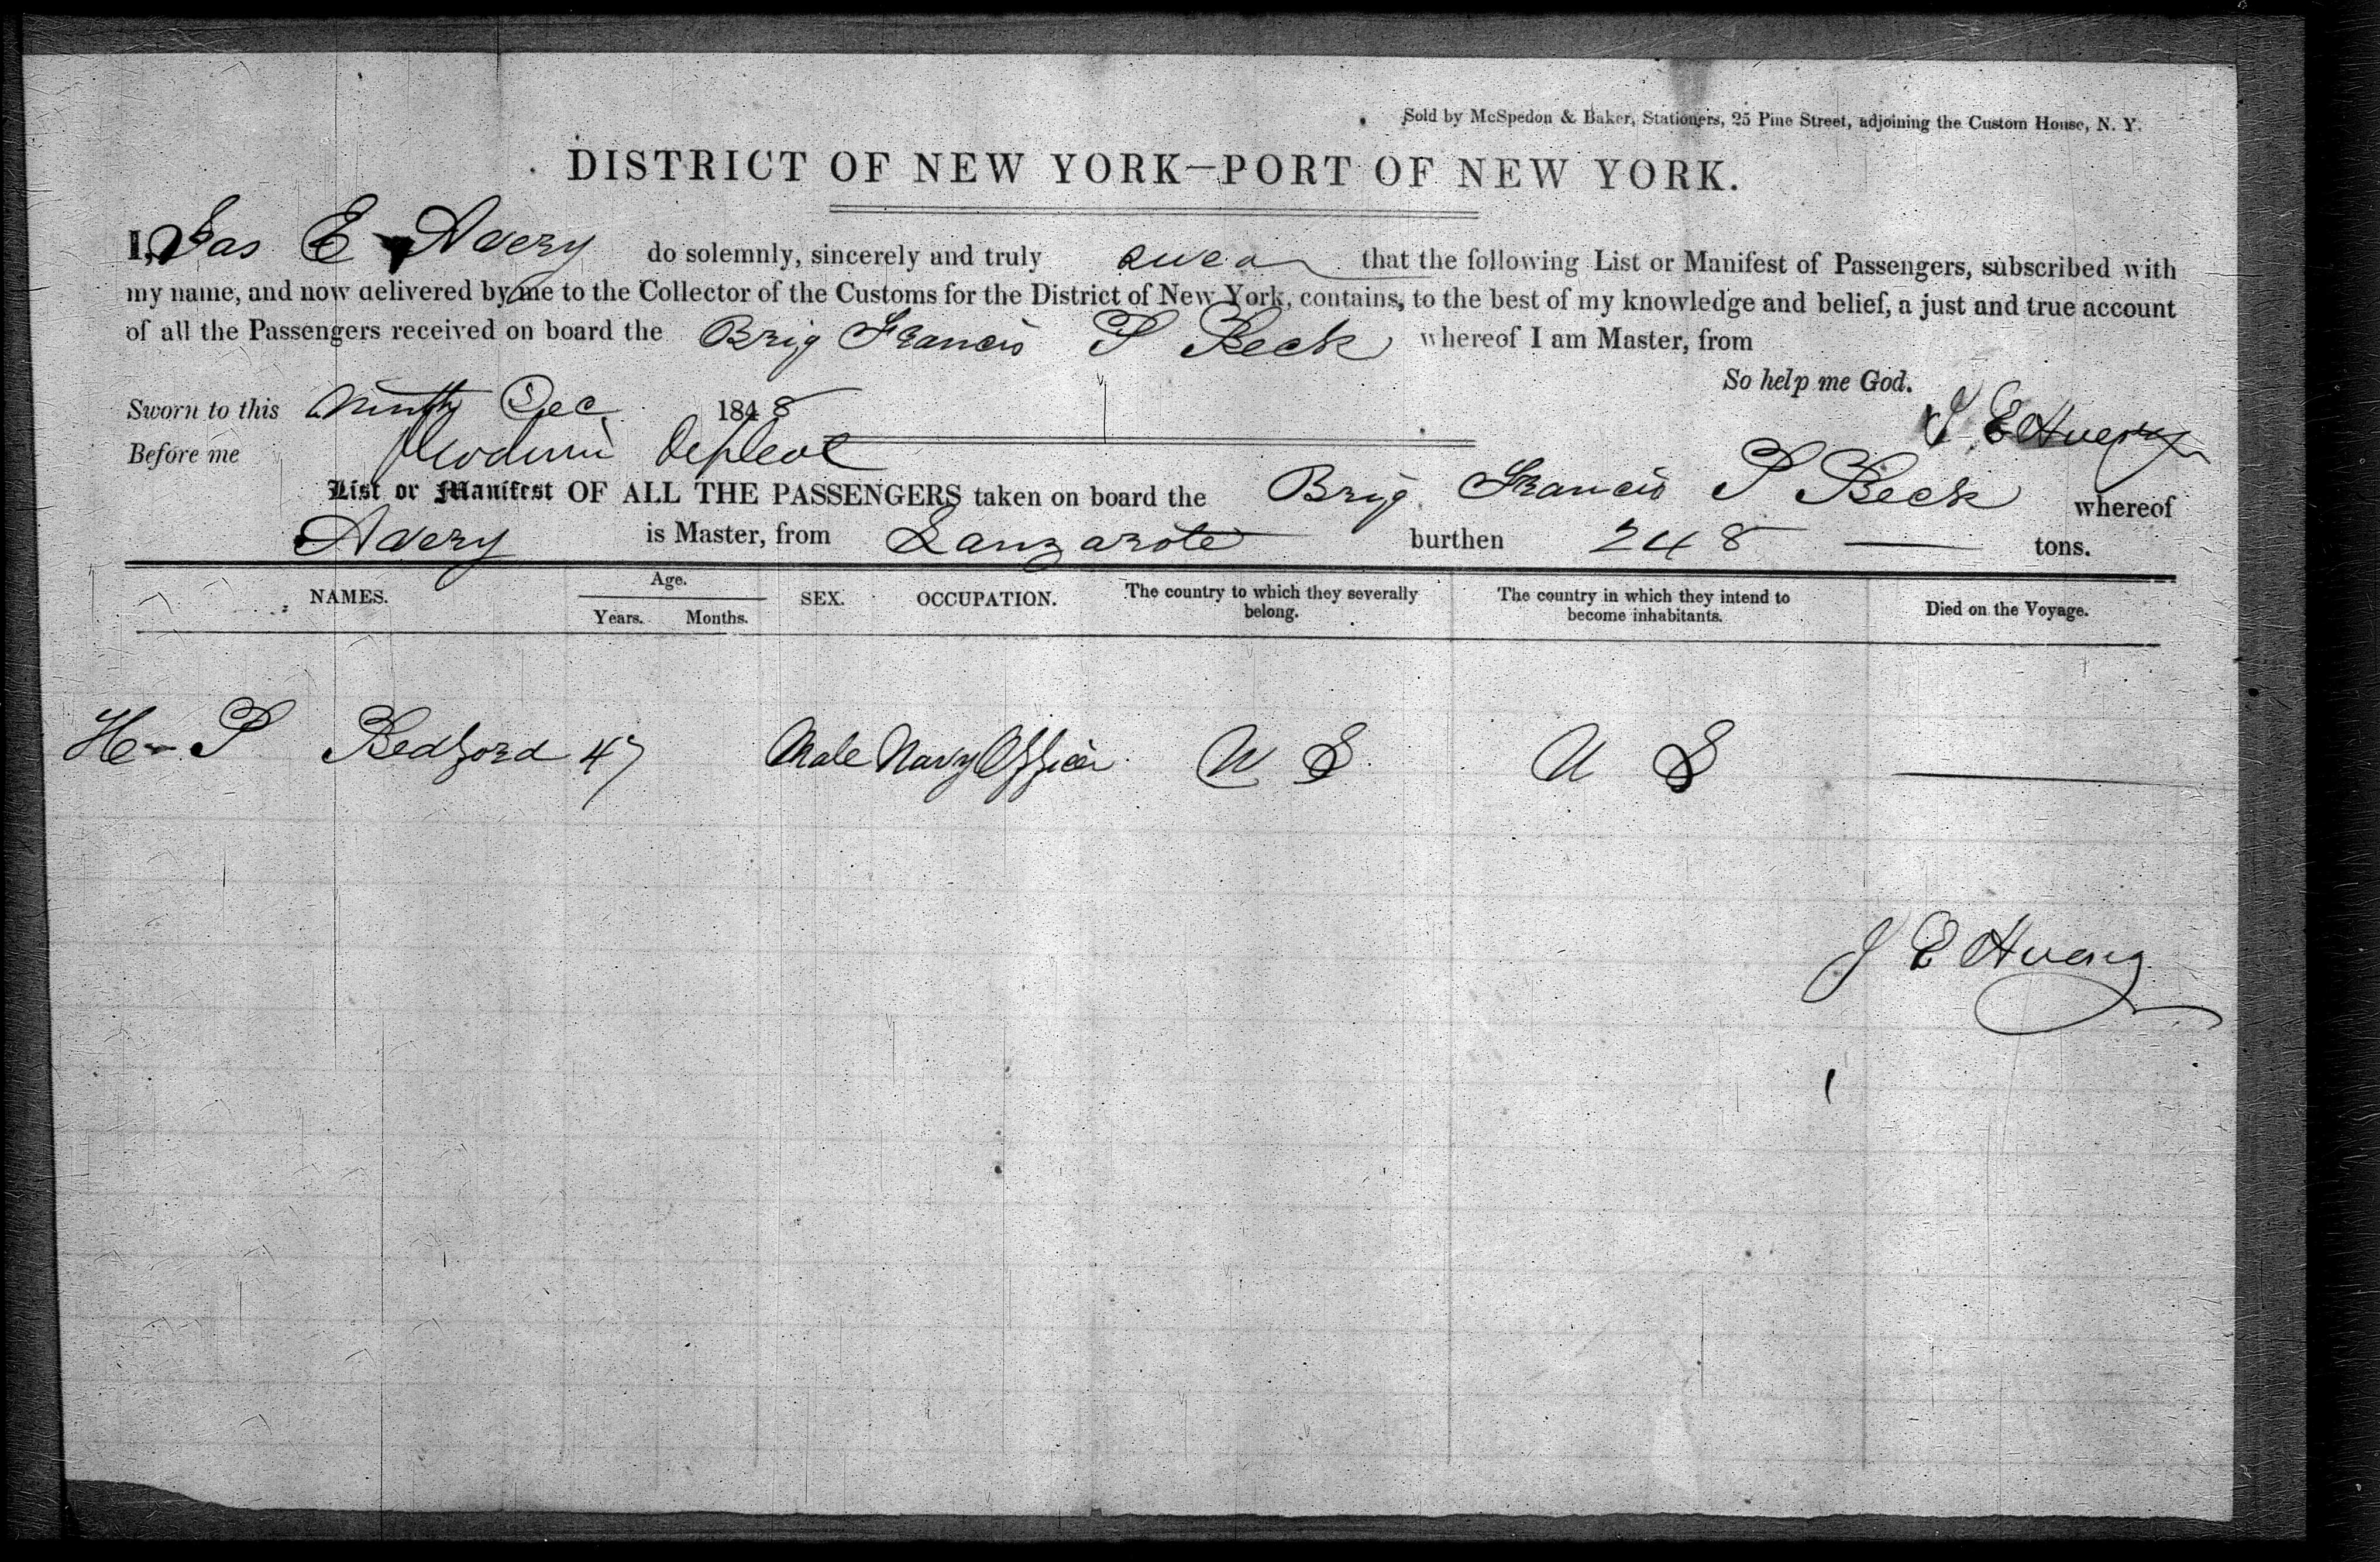 Sold by McSpedon & Baker, Stationers, 25 Pine Street, adjoining the Custom House, N. Y.
DISTRICT OF NEW YORK—PORT OF NEW YORK.
I, Jas E Avery do solemnly, sincerely and truly swear that the following List or Manifest of Passengers, subscribed with
my name, and now delivered by me to the Collector of the Customs for the District of New York, contains, to the best of my knowledge and belief, a just and true account
of all the Passengers received on board the Brig Francis P Beck whereof I am Master, from
So help me God.
Sworn to this Ninth Dec 1848
J E Avery
Before me
List or Manifest OF ALL THE PASSENGERS taken on board the Brig Francis P Beck whereof
Avery is Master, from Lanzarote burthen 248 — tons.
NAMES. Age. Years. Months. SEX. OCCUPATION. The country to which they severally belong. The country in which they intend to become inhabitants. Died on the Voyage.
P Bedford 47 Male Navy Officer U S U S —
J E Avery